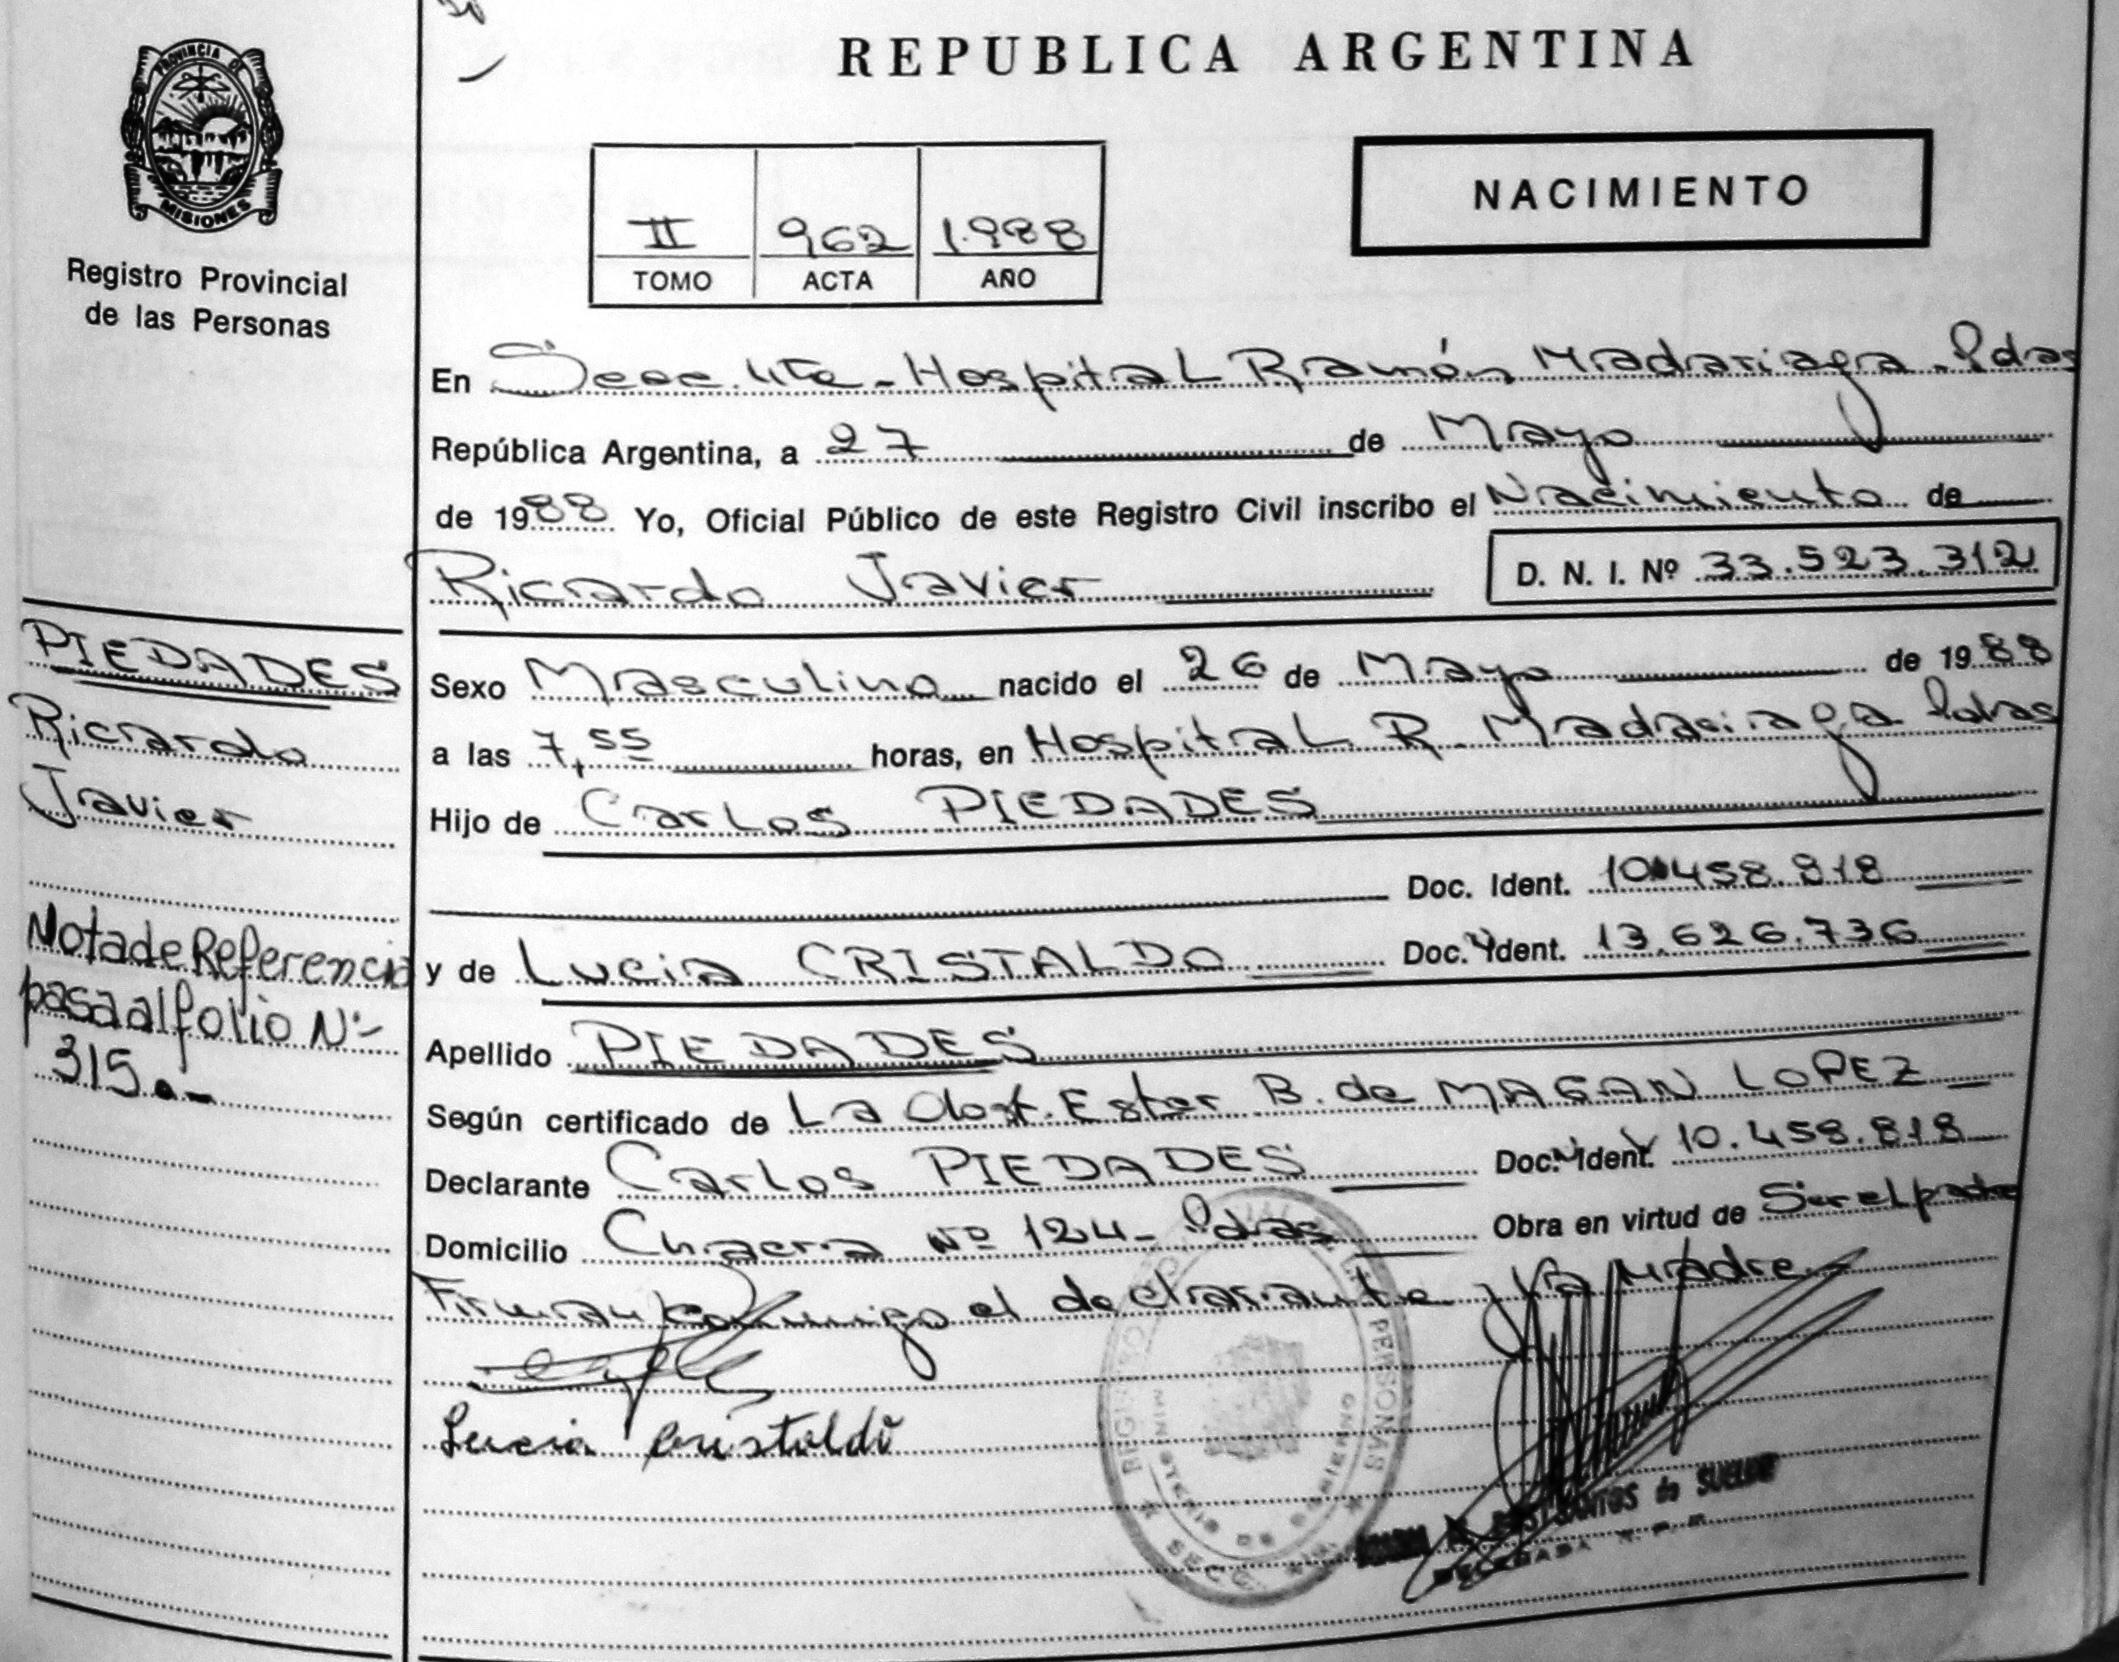 PROVINCIA DE
MISIONES
Registro Provincial
de las Personas
REPUBLICA ARGENTINA
II 962 1.988
TOMO ACTA AÑO
NACIMIENTO
En Secc. 4ta - Hospital Ramón Madariaga. Pdas
República Argentina, a 27 de Mayo
de 1988 Yo, Oficial Público de este Registro Civil inscribo el Nacimiento de
Ricardo Javier D. N. I. Nº 33.523.312
PIEDADES
Ricardo
Javier
Nota de Referencia
pasa al folio Nº
315.-
Sexo Masculino nacido el 26 de Mayo de 1988
a las 7,55 horas, en Hospital R. Madariaga Pdas
Hijo de Carlos PIEDADES
Doc. Ident. 10.458.818
y de Lucia CRISTALDO Doc. Ident. 13.626.736
Apellido PIEDADES
Según certificado de La Obst. Ester B. de MAGAN LOPEZ
Declarante Carlos PIEDADES Doc. Ident. 10.458.818
Domicilio Chacra Nº 124 - Pdas Obra en virtud de Ser el padre
Firman conmigo el declarante y la Madre
Lucia Cristaldo
REGISTRO PERSONAS
SECC.
de SUELDO
DELEGADA